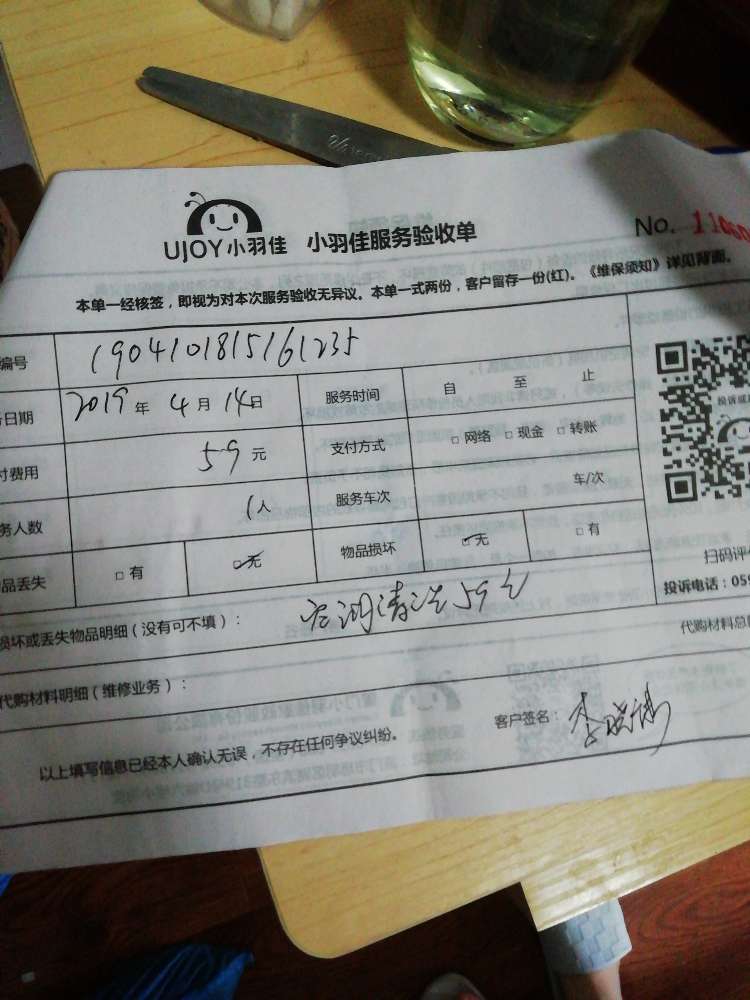 UJOY小羽佳 小羽佳服务验收单
No. 11060
本单一经核签，即视为对本次服务验收无异议。本单一式两份，客户留存一份(红)。《维保须知》详见背面。
编号 1904101815161235
日期 2019年4月14日 服务时间 自 至 止
付费用 59元 支付方式 □网络 □现金 □转账
务人数 1人 服务车次 车/次
品丢失 □有 □无 物品损坏 □无 □有
扫码评
投诉电话：059
损坏或丢失物品明细（没有可不填）： 空调清洗59元
代购材料总
代购材料明细（维修业务）：
以上填写信息已经本人确认无误，不存在任何争议纠纷。 客户签名：